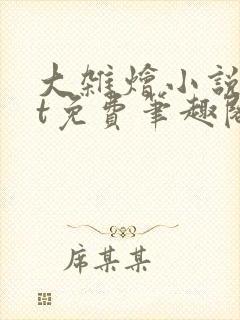 大雑燴小說
t免費筆趣閣
席某某